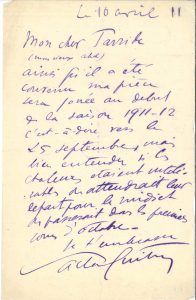 Le 10 avril 11
Mon cher Tarride
ainsi qu'il a été
convenu ma pièce
sera jouée au début
de la saison 1911-12
c'est-à-dire vers le
25 septembre, mais
bien entendu si les
chaleurs étaient intolé-
rables on attendrait leur
départ pour le
en passant dans les premiers
jours d'octobre.
Sacha Guitry